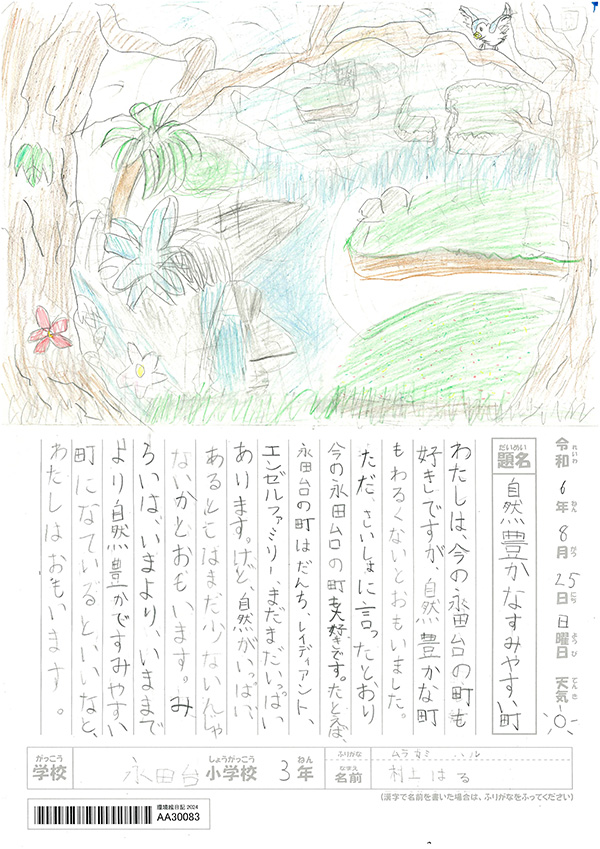 令和6年8月25日日曜日 天気
れいわ ねん がつ にち にちようび てんき
だいめい
題名 自然豊かなすみやすい町
わたしは、今の永田台の町も
好きですが、自然豊かな町
もわるくないとおもいました。
ただ、さいしょに言ったとおり
今の永田台の町も大好きです。たとえば、
永田台の町はだんち、レイディアント、
エンゼルファミリー、まだまだいっぱい
あります。けど、自然がいっぱい、
あるともはまだ少ないんじゃ
ないかとおもいます。み
らいは、いまより、いままで
より自然豊かですみやすい
町になているといいなと、
わたしはおもいます。
がっこう しょうがっこう ねん
学校 永田台 小学校 3年
ふりがな ムラカミ ハル
なまえ
名前 村上はる
(漢字で名前を書いた場合は、ふりがなをふってください)
環境絵日記2024
AA30083